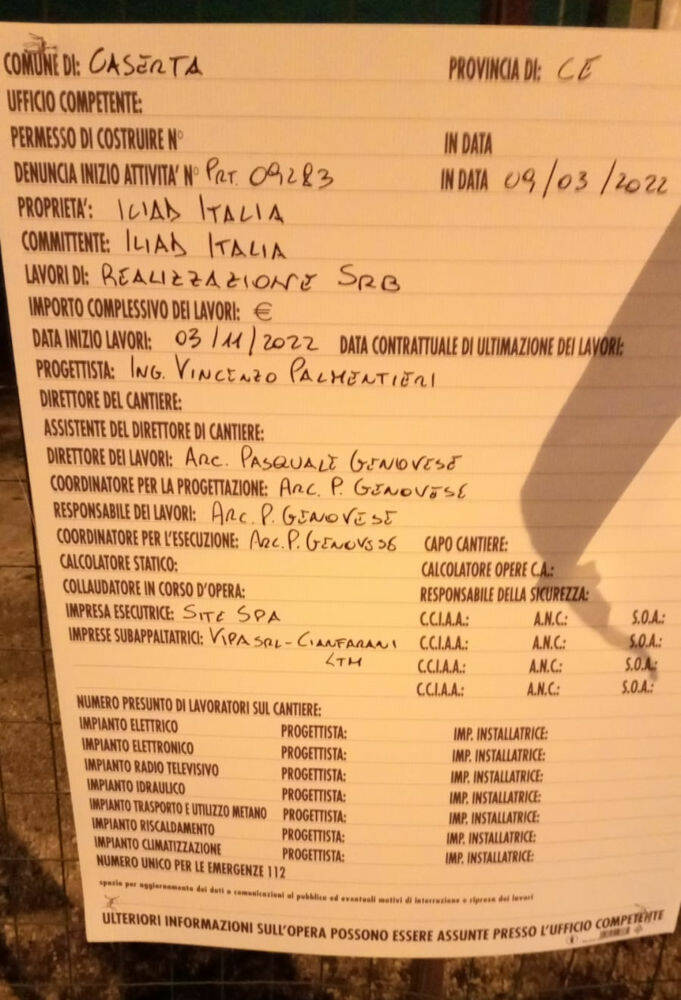 COMUNE DI: CASERTA PROVINCIA DI: CE
UFFICIO COMPETENTE:
PERMESSO DI COSTRUIRE N° IN DATA
DENUNCIA INIZIO ATTIVITA' N° PRT. 09283 IN DATA 09/03/2022
PROPRIETA': ILIAD ITALIA
COMMITTENTE: ILIAD ITALIA
LAVORI DI: REALIZZAZIONE SRB
IMPORTO COMPLESSIVO DEI LAVORI: €
DATA INIZIO LAVORI: 03/11/2022 DATA CONTRATTUALE DI ULTIMAZIONE DEI LAVORI:
PROGETTISTA: ING. VINCENZO PALMENTIERI
DIRETTORE DEL CANTIERE:
ASSISTENTE DEL DIRETTORE DI CANTIERE:
DIRETTORE DEI LAVORI: ARC. PASQUALE GENOVESE
COORDINATORE PER LA PROGETTAZIONE: ARC. P. GENOVESE
RESPONSABILE DEI LAVORI: ARC. P. GENOVESE
COORDINATORE PER L'ESECUZIONE: ARC. P. GENOVESE CAPO CANTIERE:
CALCOLATORE STATICO: CALCOLATORE OPERE C.A.:
COLLAUDATORE IN CORSO D'OPERA: RESPONSABILE DELLA SICUREZZA:
IMPRESA ESECUTRICE: SITE SPA C.C.I.A.A.: A.N.C.: S.O.A.:
IMPRESE SUBAPPALTATRICI: VIPA SRL - CIANFARANI C.C.I.A.A.: A.N.C.: S.O.A.:
LTM C.C.I.A.A.: A.N.C.: S.O.A.:
C.C.I.A.A.: A.N.C.: S.O.A.:
NUMERO PRESUNTO DI LAVORATORI SUL CANTIERE:
IMPIANTO ELETTRICO PROGETTISTA: IMP. INSTALLATRICE:
IMPIANTO ELETTRONICO PROGETTISTA: IMP. INSTALLATRICE:
IMPIANTO RADIO TELEVISIVO PROGETTISTA: IMP. INSTALLATRICE:
IMPIANTO IDRAULICO PROGETTISTA: IMP. INSTALLATRICE:
IMPIANTO TRASPORTO E UTILIZZO METANO PROGETTISTA: IMP. INSTALLATRICE:
IMPIANTO RISCALDAMENTO PROGETTISTA: IMP. INSTALLATRICE:
IMPIANTO CLIMATIZZAZIONE PROGETTISTA: IMP. INSTALLATRICE:
NUMERO UNICO PER LE EMERGENZE 112
spazio per aggiornamento dei dati o comunicazioni al pubblico ed eventuali motivi di interruzione e ripresa dei lavori
ULTERIORI INFORMAZIONI SULL'OPERA POSSONO ESSERE ASSUNTE PRESSO L'UFFICIO COMPETENTE